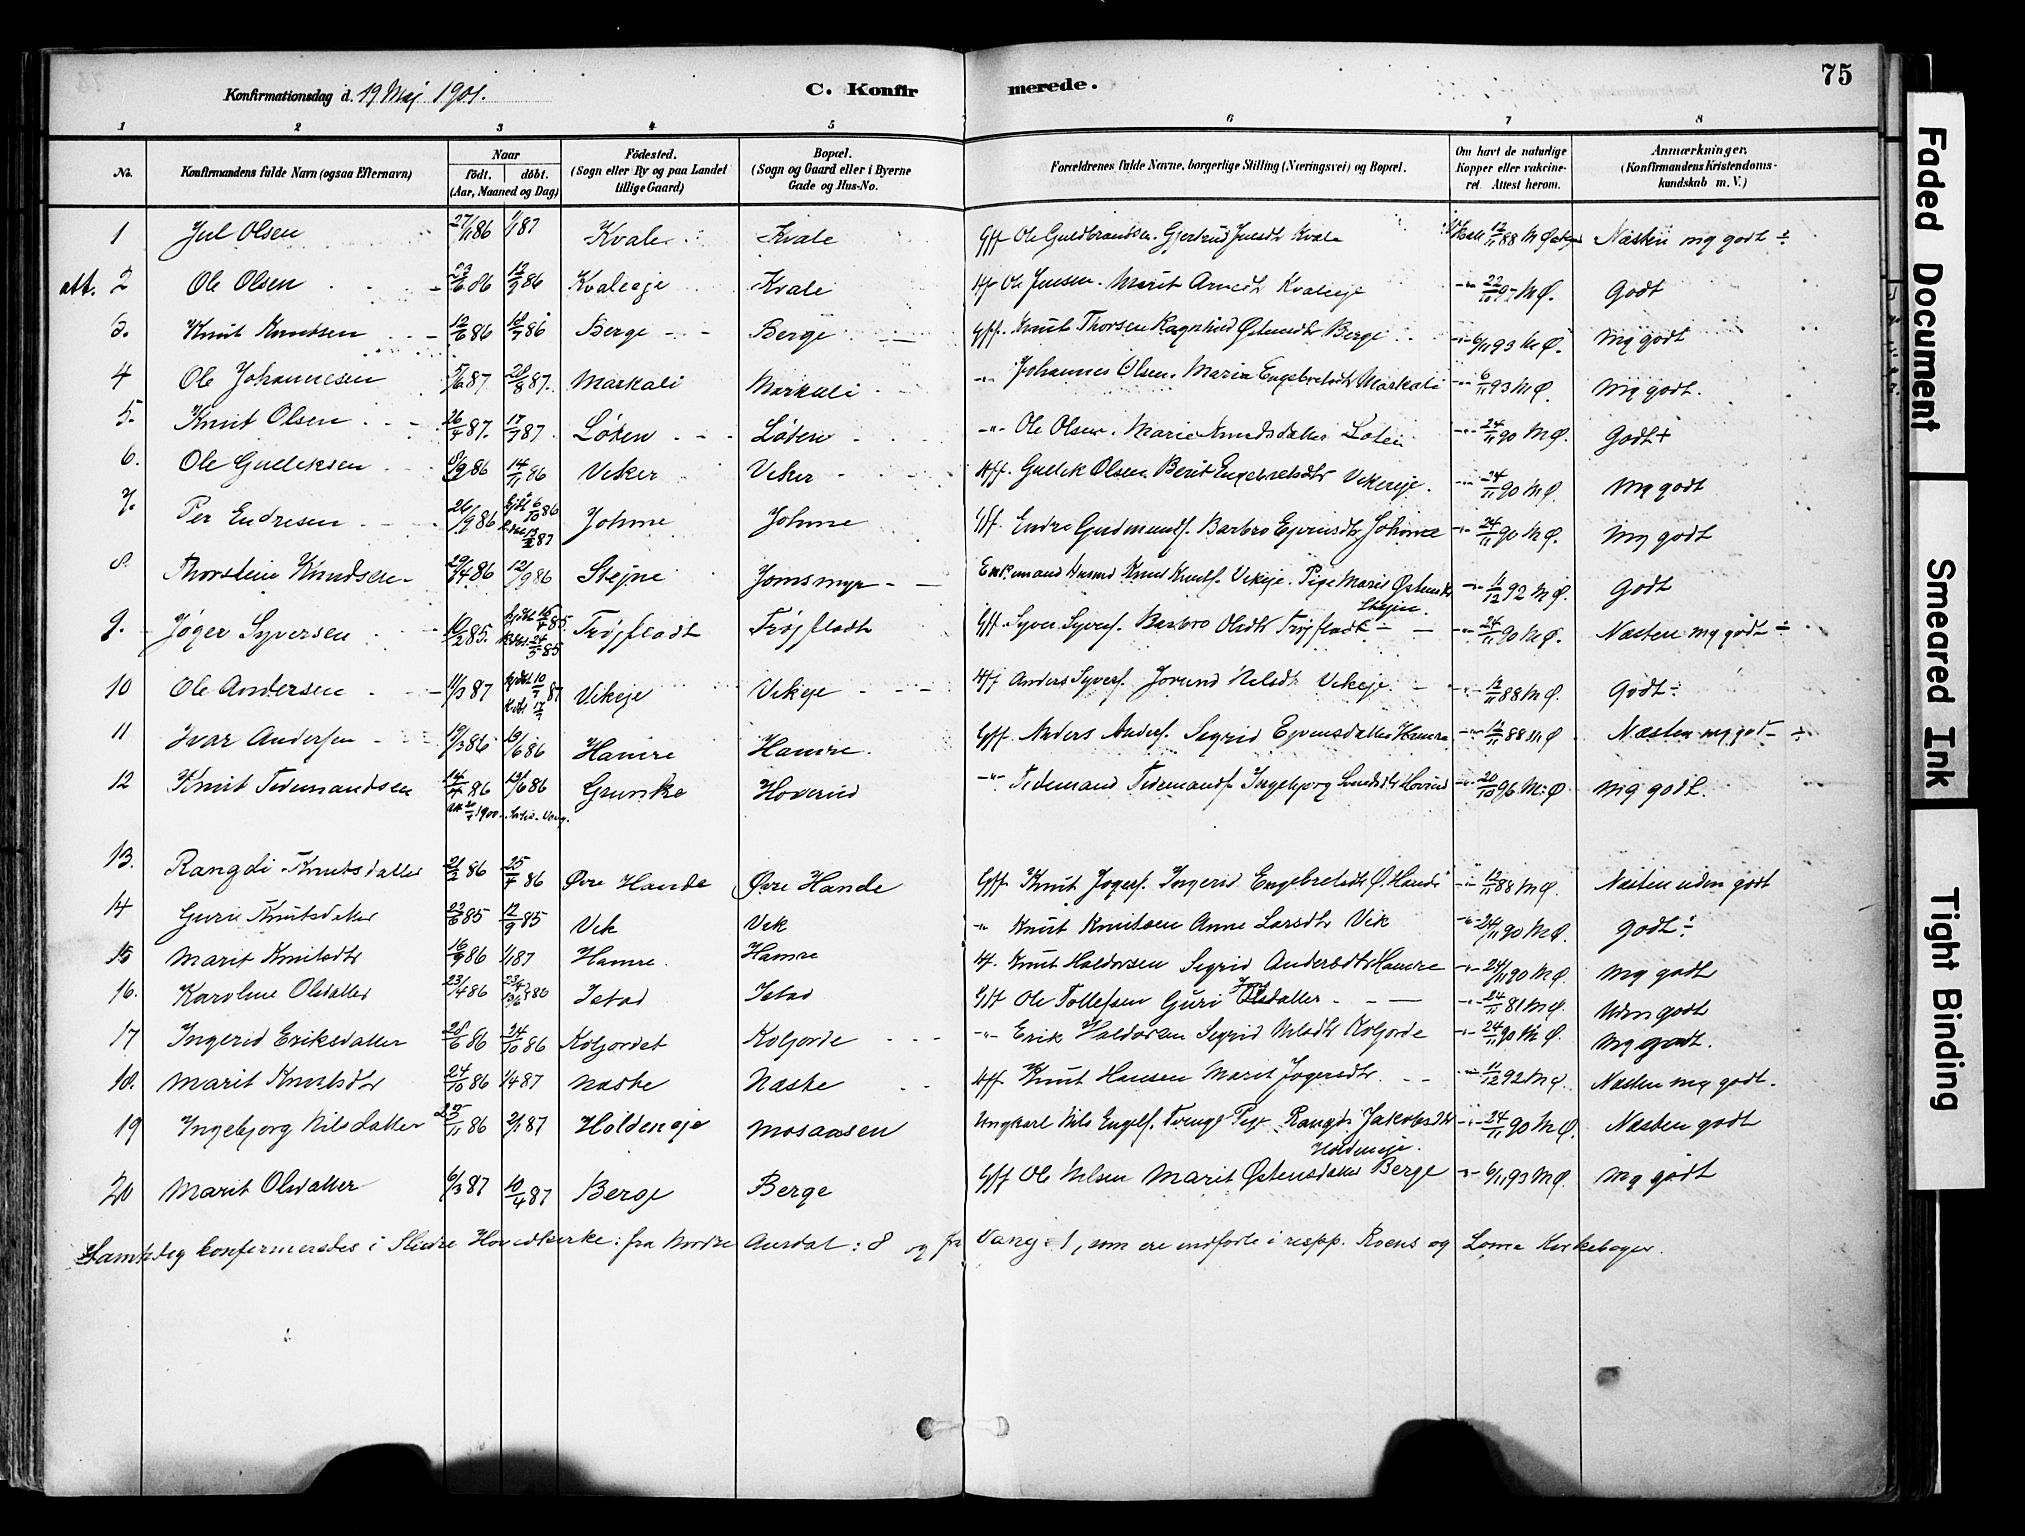 75
Konfirmationsdag d. 19 Maj 1901.
C. Konfirmerede.
1 2 3 4 5 6 7 8
No.
Konfirmandens fulde Navn (ogsaa Efternavn)
Naar
født. døbt.
(Aar, Maaned og Dag)
Fødested.
(Sogn eller By og paa Landet
tillige Gaard)
Bopæl.
(Sogn og Gaard eller i Byerne
Gade og Hus-No.
Forældrenes fulde Navne, borgerlige Stilling (Næringsvei) og Bopæl.
Om havt de naturlige
Kopper eller vakcine-
ret. Attest herom.
Anmærkninger.
(Konfirmandens Kristendoms-
kundskab m. V.)
1 Jul Olsen 27/11 86 1/1 87 Kvale Kvale Gff Ole Guldbrandsen. Gjertrud Julsdtr Kvale 12/11 88 M Ø Næsten mg godt ÷
att. 2 Ole Olsen 23/6 86 12/9 86 Kvaleeje Kvale Ole Jensen. Marit Arnedtr Kvaleeje M Ø. Godt
3. Knut Knutsen 12/6 86 18/7 86 Berge Berge Gff. Knut Thorsen Ragnhild Østensdtr Berge 6/11 93 M Ø. Mg godt
4 Ole Johannesen 5/6 87 28/8 87. Markali Markali -"- Johannes Olsen. Maria Engebretsdtr Markali 6/11 93 M Ø. Mg godt.
5. Knut Olsen 26/4 87. 17/7 87 Løken Løken -"- Ole Olsen. Marie Knudsdatter Løken 24/11 90 M Ø. Godt +
6. Ole Gulliksen 8/9 86 14/11 86 Veker Veker Gullik Olsen Berit Engebretsdtr Vekereje. 24/11 90 M Ø Mg godt
7. Per Endresen 26/9 86 hjdt 6/10 86 12/2 87 Johme Johme Gff. Endre Gudmundf. Barbro Ejvindsdtr Johme 24/11 90 M Ø. Mg godt
8. Thorstein Knudsen 29/4 86 12/9 86 Stejne Jomsmyr Knut Knutf. Vikeje. Pige Marit Østensdtr 11/12 92 M Ø. Godt
Stejne.
9. Jøger Syversen 10/2 85. hjdt 15/4 85. 24/5 85 Trøjfladt Trøjfladt Gff Syver Syverf. Barbro Olsdtr Trøjfladt 24/11 90 M Ø. Næsten mg godt ÷
10 Ole Andersen 11/3 87 hjdt 10/7 87 17/7 Vikeje Vikeje Anders Syverf. Jorund Nilsdtr Vikeje 12/11 88 M Ø. Godt ÷
11 Ivar Andersen 19/3 86 19/6 86 Hamre Hamre. Gff. Anders Anderf. Sigrid Ejvinsdatter Hamre 12/11 88 M Ø Næsten mg godt ÷
12 Knut Tidemandsen 14/4 86 19/6 86 Grunke Hoverud -"- Tidemand Tidemandf. Ingebjorg Hoverud 20/10 96 M Ø Mg godt.
1900.
13. Rangdi Knutsdatter 21/2 86 25/4 86 Øvre Hande Øvre Hande Gff. Knut Jogerf. Ingerid Engebretsdtr Ø. Hande 12/11 88 M Ø. Næsten uden godt
14 Guri Knutsdatter 22/6 85 12/9 85 Vik Vik -"- Knut Knutsen Anne Larsdtr Vik 24/11 90 M Ø. Godt ÷
15 Marit Knutsdtr 16/9 86 1/1 87 Hamre. Hamre Knut Haldorsen Sigrid Andersdtr Hamre 24/11 90 M Ø. Mg godt
16. Karoline Olsdatter 23/4 86 Istad Istad Gff Ole Tollefsen Guri Olsdatter 24/11 81 M Ø. Uden godt
17 Ingerid Eriksdatter 28/6 86 24/10 86 Koljordet Koljorde -"- Erik Haldorsen Sigrid Nilsdtr Koljorde 24/11 90 M Ø. Mg godt.
18. Marit Knutsdtr 24/10 86 1/4 87 Næske Næske Knut Hansen Marit Jogersdtr. 11/12 92 M Ø. Næsten mg godt.
19 Ingebjorg Nilsdatter 25/11 86 2/1 87 Holdeneje Mosaasen Ungkarl Nils Engelf. Pige Rangdi Jakobsdtr 24/11 90 M Ø. Næsten godt
Holdeneje.
20 Marit Olsdatter 6/3 87 10/4 87 Berge Berge Gff Ole Nilsen Marit Østensdatter Berge 6/11 93 M Ø. Mg godt
Samtidig konfirmeredes i Slidre Hovedkirke: fra Nordre Aurdal: 8 og fra Vang: 1, som ere indførte i resp. Roens og Lome Kirkebøger.
Faded Document
Smeared Ink
Tight Binding